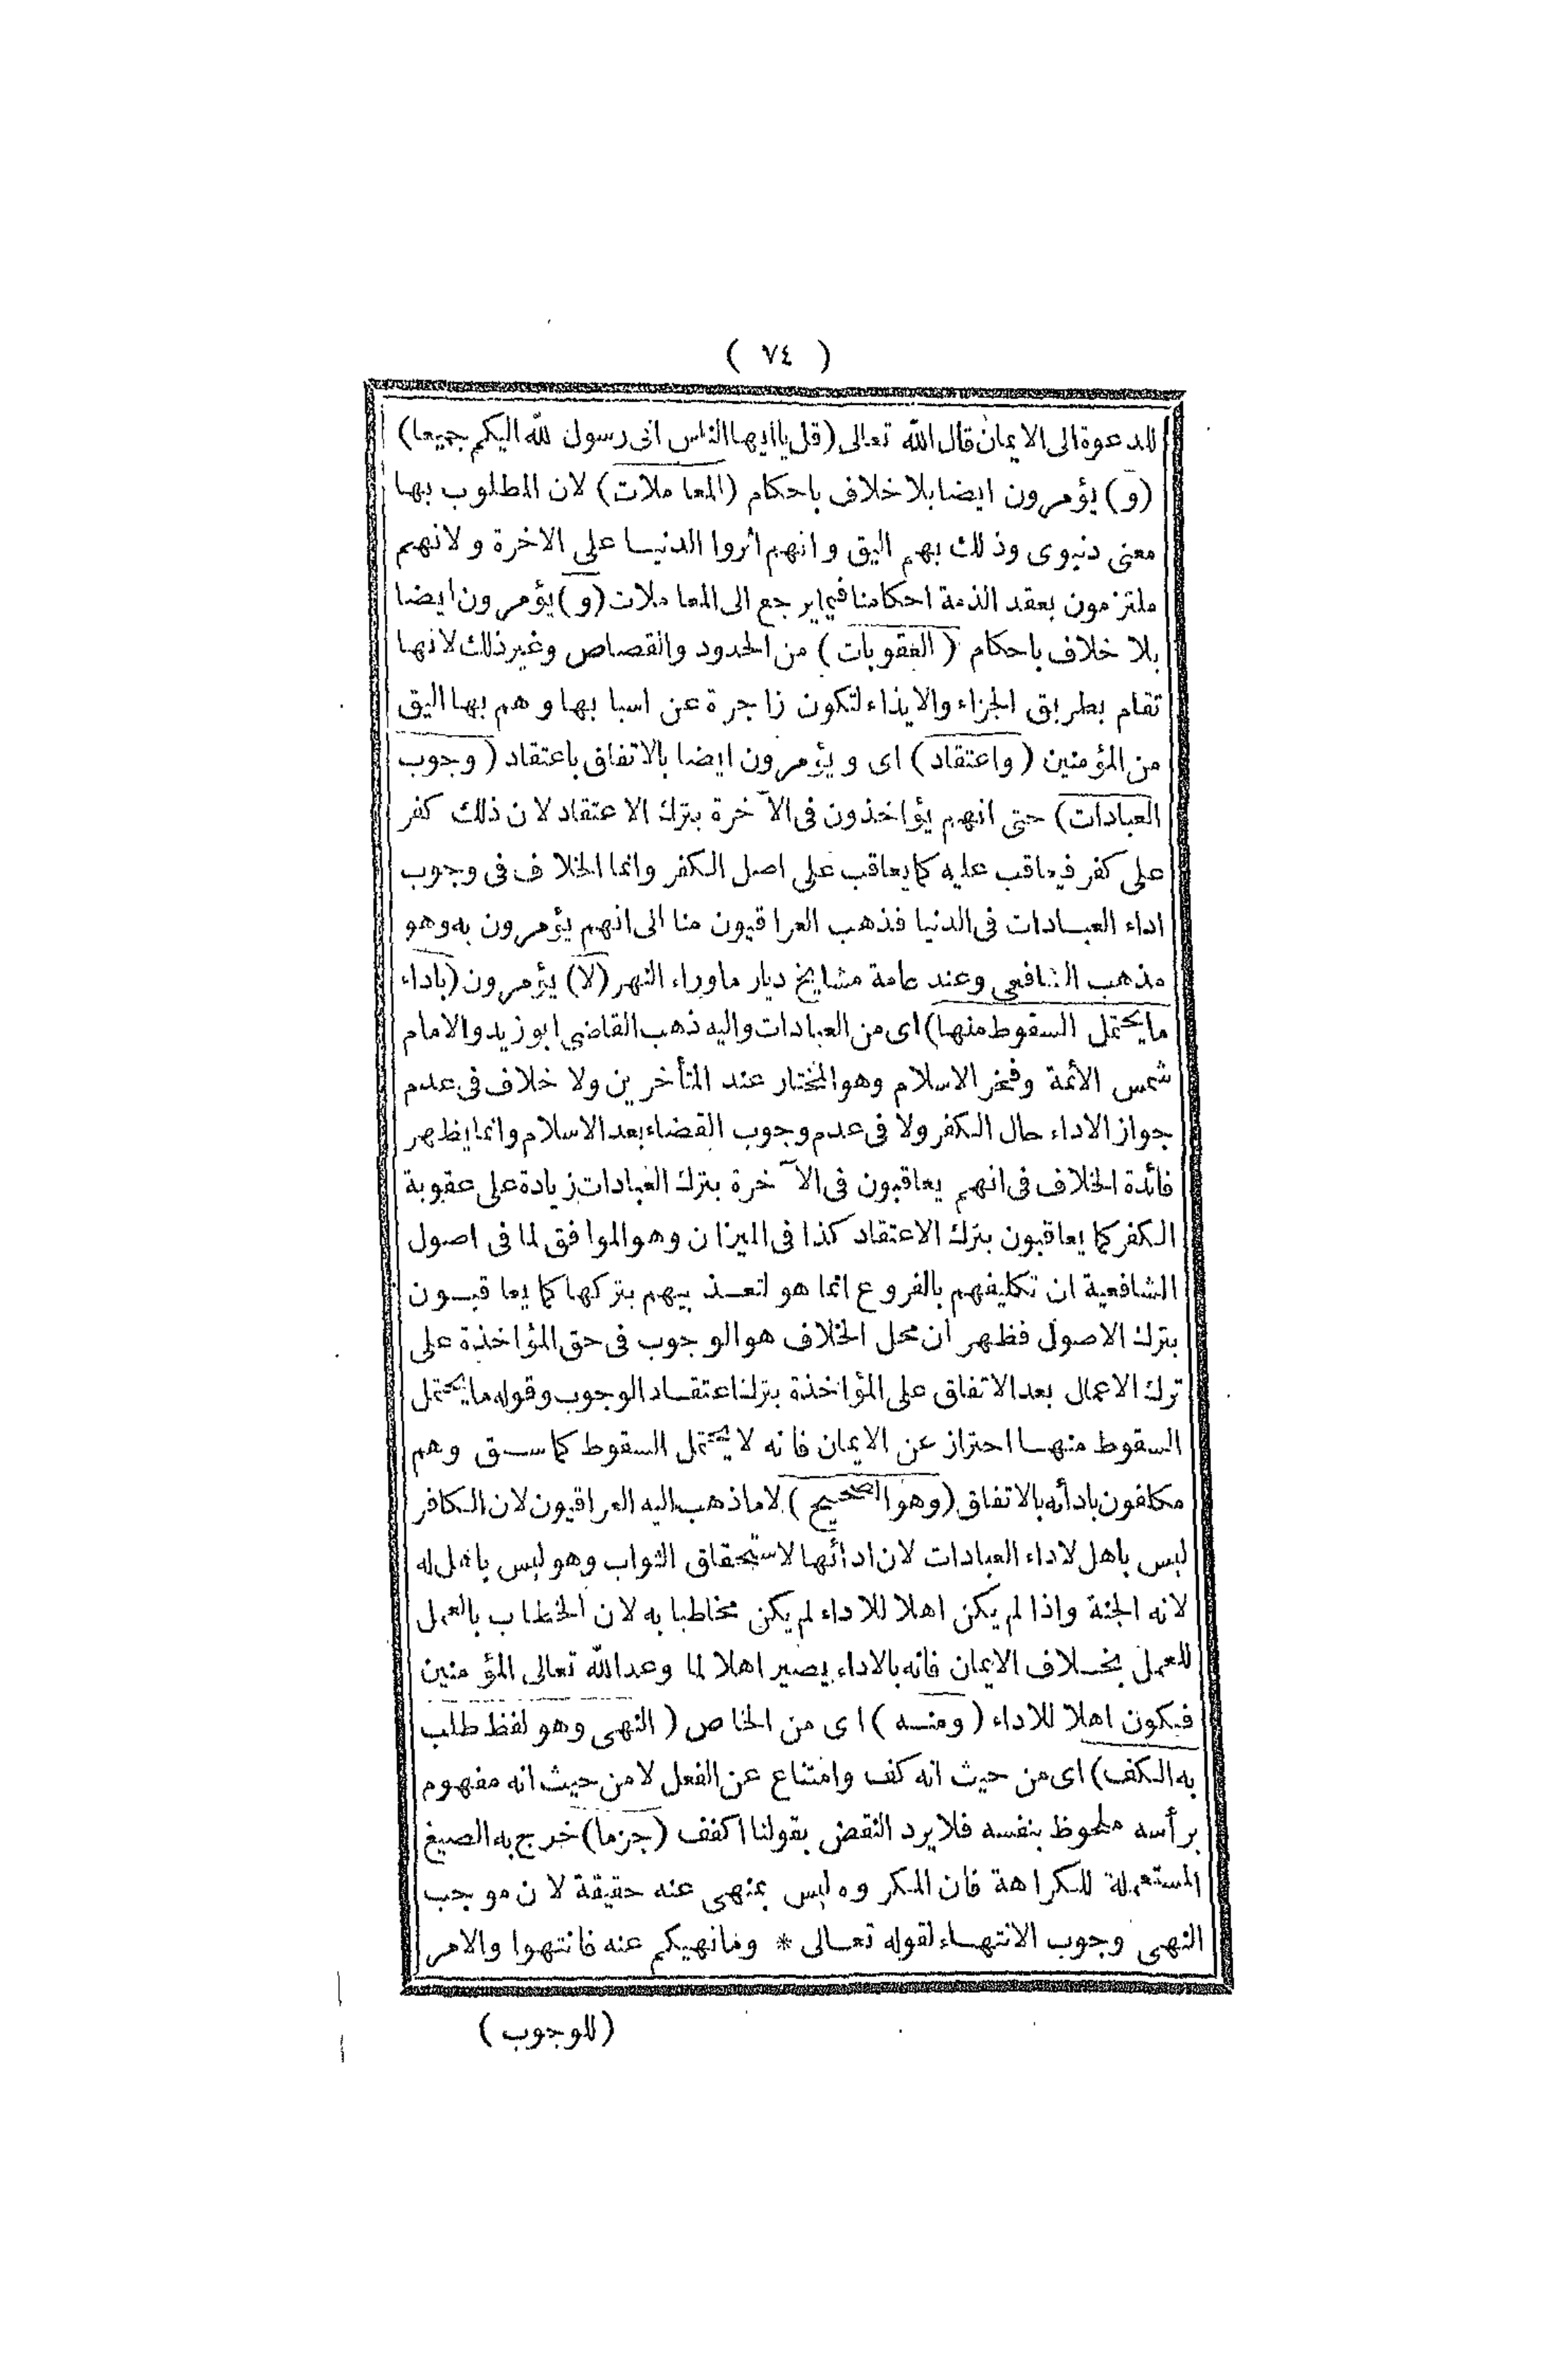 ( ٧٤ )
للدعوة الى الايمان قال الله تعالى (قل ياايها الناس انى رسول لله اليكم جميعا)
(و) يؤمرون ايضا بلا خلاف باحكام (المعاملات) لان المطلوب بها
معنى دنيوى وذلك بهم اليق وانهم اثروا الدنيا على الاخرة ولانهم
ملتزمون بعقد الذمة احكامنا فيما يرجع الى المعاملات (و) يؤمرون ايضا
بلا خلاف باحكام (العقوبات) من الحدود والقصاص وغير ذلك لانها
تقام بطريق الجزاء والايذاء لتكون زاجرة عن اسبابها وهم بها اليق
من المؤمنين (واعتقاد) اى ويؤمرون ايضا بالاتفاق باعتقاد (وجوب
العبادات) حتى انهم يؤاخذون فى الآخرة بترك الاعتقاد لان ذلك كفر
على كفر فيعاقب عليه كما يعاقب على اصل الكفر وانما الخلاف فى وجوب
اداء العبادات فى الدنيا فذهب العراقيون منا الى انهم يؤمرون به وهو
مذهب الشافعى وعند عامة مشايخ ديار ماوراء النهر (لا) يؤمرون (باداء
ما يحتمل السقوط منها) اى من العبادات واليه ذهب القاضى ابو زيد والامام
شمس الائمة وفخر الاسلام وهو المختار عند المتأخرين ولا خلاف فى عدم
جواز الاداء حال الكفر ولا فى عدم وجوب القضاء بعد الاسلام وانما يظهر
فائدة الخلاف فى انهم يعاقبون فى الآخرة بترك العبادات زيادة على عقوبة
الكفر كما يعاقبون بترك الاعتقاد كذا فى الميزان وهو الموافق لما فى اصول
الشافعية ان تكليفهم بالفروع انما هو لتعذيبهم بتركها كما يعاقبون
بترك الاصول فظهر ان محل الخلاف هو الوجوب فى حق المؤاخذة على
ترك الاعمال بعد الاتفاق على المؤاخذة بترك اعتقاد الوجوب وقوله ما يحتمل
السقوط منها احتراز عن الايمان فانه لا يحتمل السقوط كما سبق وهم
مكلفون بادأته بالاتفاق (وهو الصحيح) لا ما ذهب اليه العراقيون لان الكافر
ليس باهل لاداء العبادات لان ادائها لاستحقاق الثواب وهو ليس باهل له
لانه الجنة واذا لم يكن اهلا للاداء لم يكن مخاطبا به لان الخطاب بالعمل
للعمل بخلاف الايمان فانه بالاداء يصير اهلا لما وعد الله تعالى المؤمنين
فيكون اهلا للاداء (ومنه) اى من الخاص (النهى وهو لفظ طلب
به الكف) اى من حيث انه كف وامتناع عن الفعل لا من حيث انه مفهوم
برأسه ملحوظ بنفسه فلا يرد النقض بقولنا اكفف (جزما) خرج به الصيغ
المستعملة للكراهة فان المكروه ليس بمنهى عنه حقيقة لان موجب
النهى وجوب الانتهاء لقوله تعالى * وما نهيكم عنه فانتهوا والامر
(للوجوب)